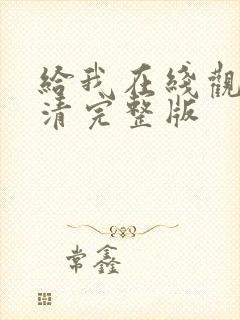 給我在綫觀
清完整版
常鑫